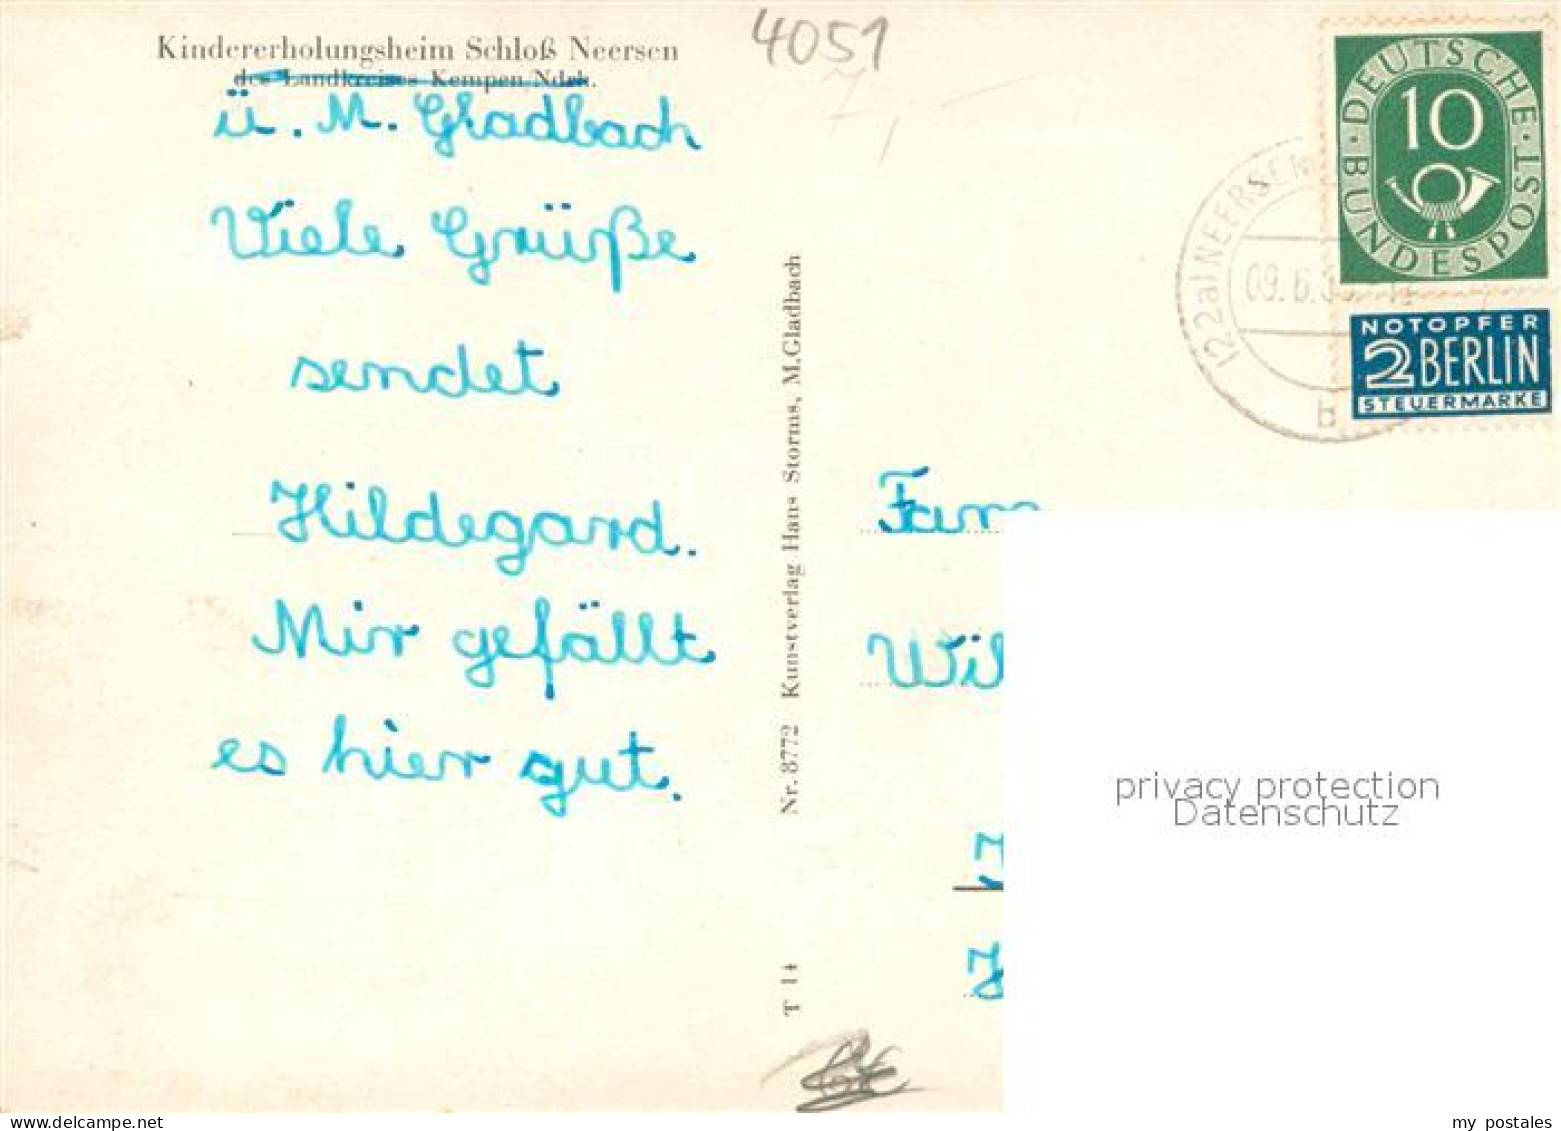 Kindererholungsheim Schloß Neersen
des Landkreises Kempen Ndrh.
ü. M. Gladbach
Viele Grüße
sendet
Hildegard.
Mir gefällt
es hier gut.
Nr. 8772 Kunstverlag Hans Storms, M.Gladbach
T 14
4051
DEUTSCHE BUNDESPOST
10
NOTOPFER
2 BERLIN
STEUERMARKE
(22a) NEERSEN
09.6.5
b
Fam
Wil
privacy protection
Datenschutz
my postales